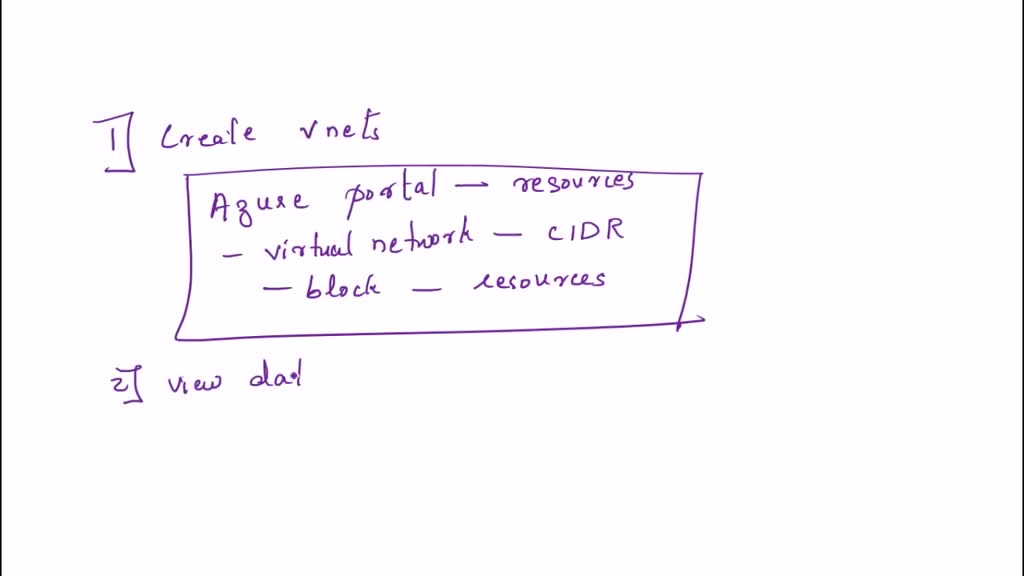 1] Create vnets
Azure portal — resources
— virtual network — CIDR
— block — resources
2] view dat